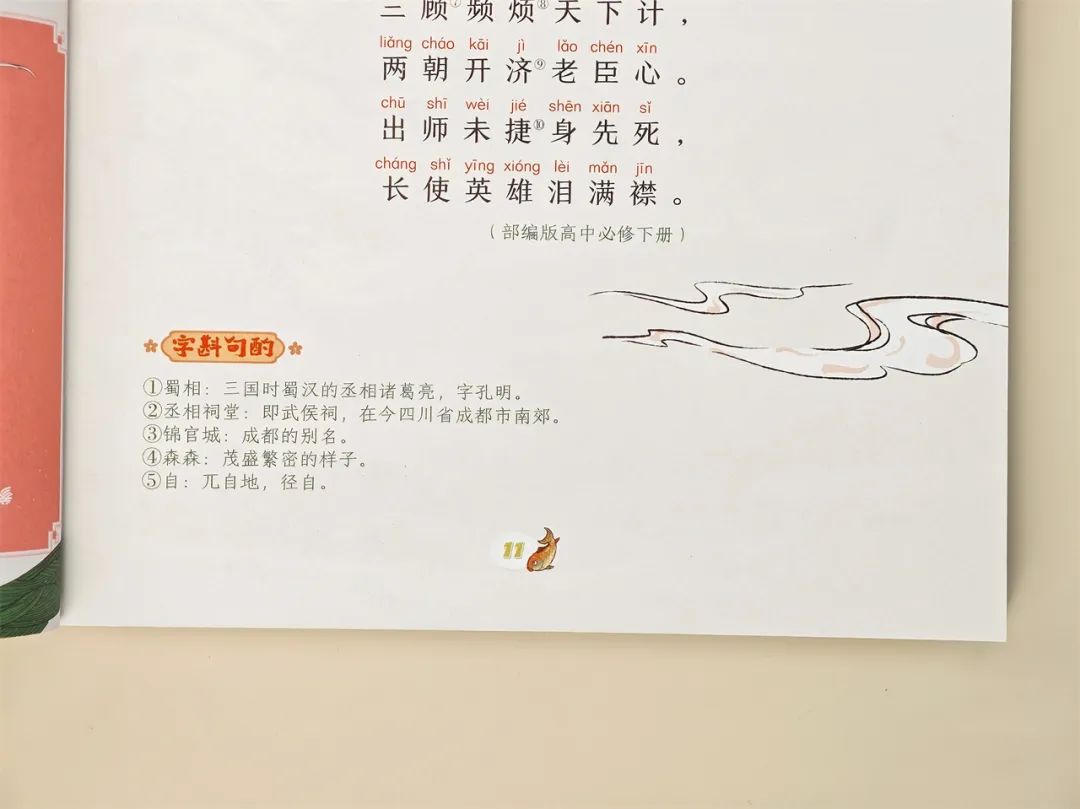 三顾⑦频烦⑧天下计，
liǎng cháo kāi jì lǎo chén xīn
两朝开济⑨老臣心。
chū shī wèi jié shēn xiān sǐ
出师未捷⑩身先死，
cháng shǐ yīng xióng lèi mǎn jīn
长使英雄泪满襟。
（部编版高中必修下册）
字斟句酌
①蜀相：三国时蜀汉的丞相诸葛亮，字孔明。
②丞相祠堂：即武侯祠，在今四川省成都市南郊。
③锦官城：成都的别名。
④森森：茂盛繁密的样子。
⑤自：兀自地，径自。
11